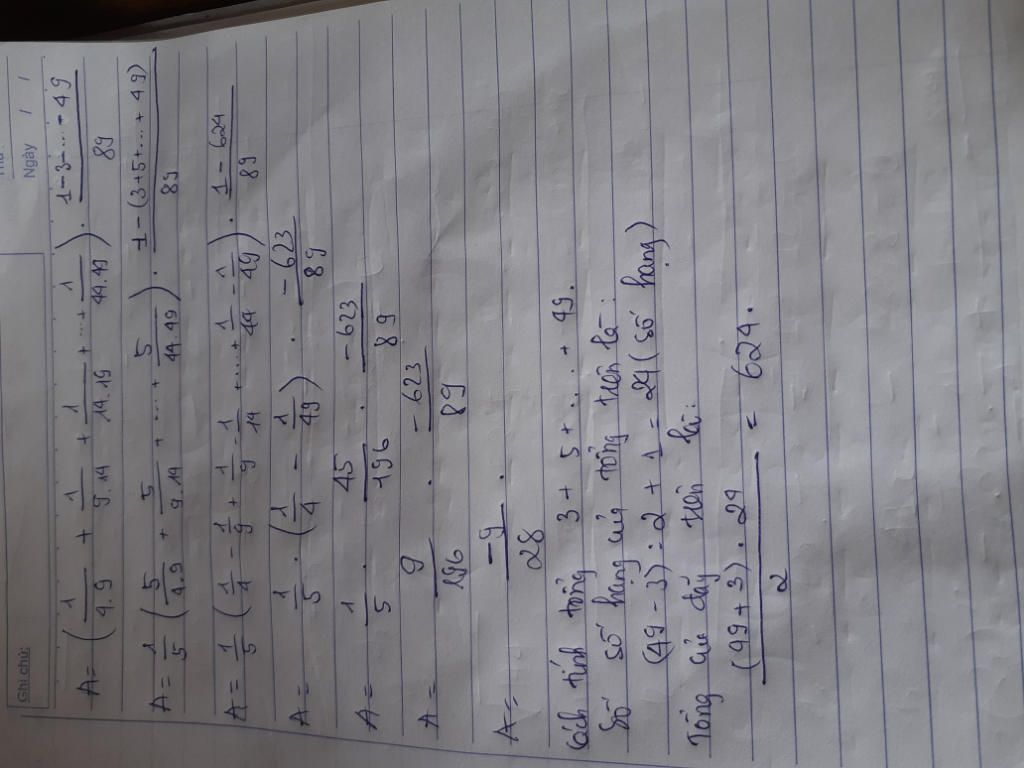 Ghi chú:
Ngày / /
A = (1/4.9 + 1/9.14 + 1/14.19 + ... + 1/44.49) . 1-3-...-49/89
A = 1/5 (5/4.9 + 5/9.14 + ... + 5/44.49) . 1-(3+5+...+49)/89
A = 1/5 (1/4 - 1/9 + 1/9 - 1/14 + ... + 1/44 - 1/49) . 1-624/89
A = 1/5 . (1/4 - 1/49) . -623/89
A = 1/5 . 45/196 . -623/89
A = 9/196 . -623/89
A = -9/28 .
Cách tính tổng 3 + 5 + ... + 49.
Số số hạng của tổng trên là:
(49 - 3) : 2 + 1 = 24 (số hạng)
Tổng của dãy trên là:
(49+3) . 24/2 = 624.